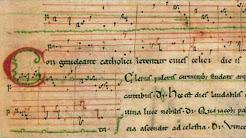 Con gaudeant catholici letentur ciues celici die
Clerus pulcris carminibus studeat
cantibus. Di. Hec est dies laudabilis
uina luce nobilis. Di. Qua iacob
tia ascendit ad celestia. Di.